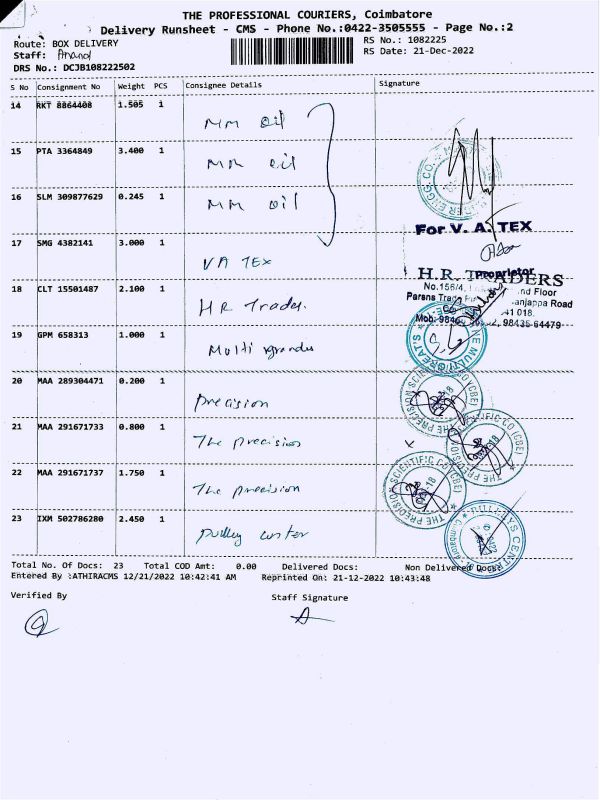 THE PROFESSIONAL COURIERS, Coimbatore
Delivery Runsheet - CMS - Phone No.:0422-3505555 - Page No.:2
Route: BOX DELIVERY
RS No.: 1082225
Staff: Anand
RS Date: 21-Dec-2022
DRS No.: DCJB108222502
S No Consignment No Weight PCS Consignee Details Signature
14 RKT 8864408 1.505 1
MM oil
15 PTA 3364849 3.400 1
MM oil
16 SLM 309877629 0.245 1
MM oil
For V. A. TEX
17 SMG 4382141 3.000 1
VA TEX
Proprietor
H.R. TRADERS
18 CLT 15501487 2.100 1
No.156/4, nd Floor
Parans Trad anjappa Road
HR Trades.
41 018.
Mob: 9846 98435 64479
19 GPM 658313 1.000 1
Multi
20 MAA 289304471 0.200 1
precision
21 MAA 291671733 0.800 1
The precision
22 MAA 291671737 1.750 1
The precision
THE PRECISION SCIENTIFIC CO (CBE)
23 IXM 502786280 2.450 1
pulley
Total No. Of Docs: 23 Total COD Amt: 0.00 Delivered Docs: Non Delivered Docs:
Entered By :ATHIRACMS 12/21/2022 10:42:41 AM Reprinted On: 21-12-2022 10:43:48
Verified By Staff Signature